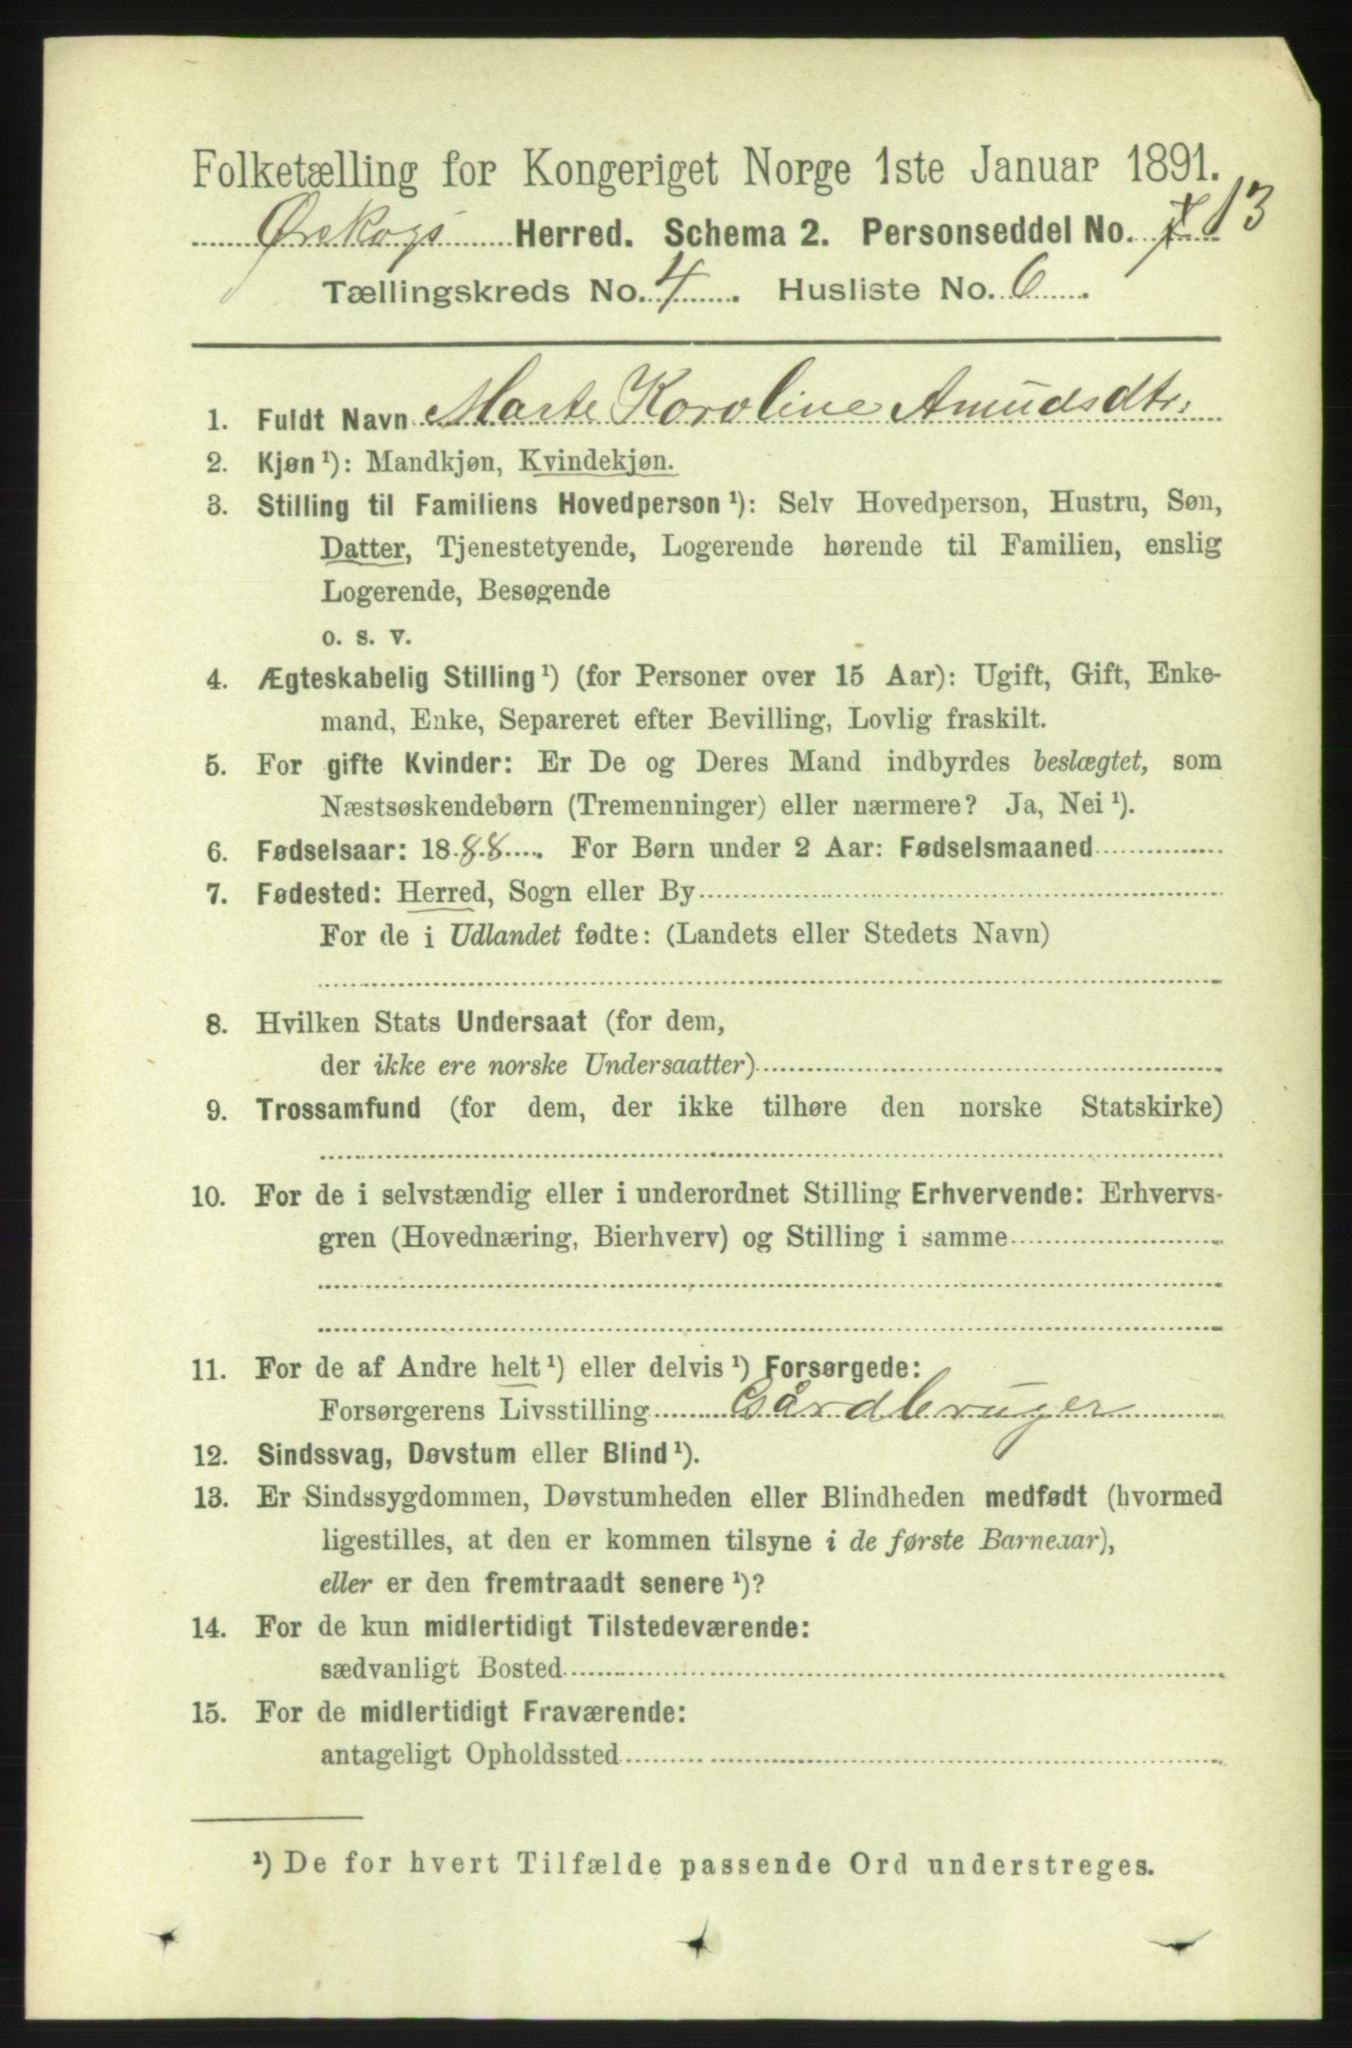 Folketælling for Kongeriget Norge 1ste Januar 1891.
Ørskogs Herred. Schema 2. Personseddel No. 13
Tællingskreds No. 4. Husliste No. 6.
1. Fuldt Navn Marte Karoline Amudsdtr.
2. Kjøn ¹): Mandkjøn, Kvindekjøn.
3. Stilling til Familiens Hovedperson ¹): Selv Hovedperson, Hustru, Søn,
Datter, Tjenestetyende, Logerende hørende til Familien, enslig
Logerende, Besøgende
o. s. v.
4. Ægteskabelig Stilling ¹) (for Personer over 15 Aar): Ugift, Gift, Enke-
mand, Enke, Separeret efter Bevilling, Lovlig fraskilt.
5. For gifte Kvinder: Er De og Deres Mand indbyrdes beslægtet, som
Næstsøskendebørn (Tremenninger) eller nærmere? Ja, Nei ¹).
6. Fødselsaar: 1888. For Børn under 2 Aar: Fødselsmaaned
7. Fødested: Herred, Sogn eller By
For de i Udlandet fødte: (Landets eller Stedets Navn)
8. Hvilken Stats Undersaat (for dem,
der ikke ere norske Undersaatter)
9. Trossamfund (for dem, der ikke tilhøre den norske Statskirke)
10. For de i selvstændig eller i underordnet Stilling Erhvervende: Erhvervs-
gren (Hovednæring, Bierhverv) og Stilling i samme
11. For de af Andre helt ¹) eller delvis ¹) Forsørgede:
Forsørgerens Livsstilling Gårdbruger
12. Sindssvag, Døvstum eller Blind ¹).
13. Er Sindssygdommen, Døvstumheden eller Blindheden medfødt (hvormed
ligestilles, at den er kommen tilsyne i de første Barneaar),
eller er den fremtraadt senere ¹)?
14. For de kun midlertidigt Tilstedeværende:
sædvanligt Bosted
15. For de midlertidigt Fraværende:
antageligt Opholdssted
¹) De for hvert Tilfælde passende Ord understreges.